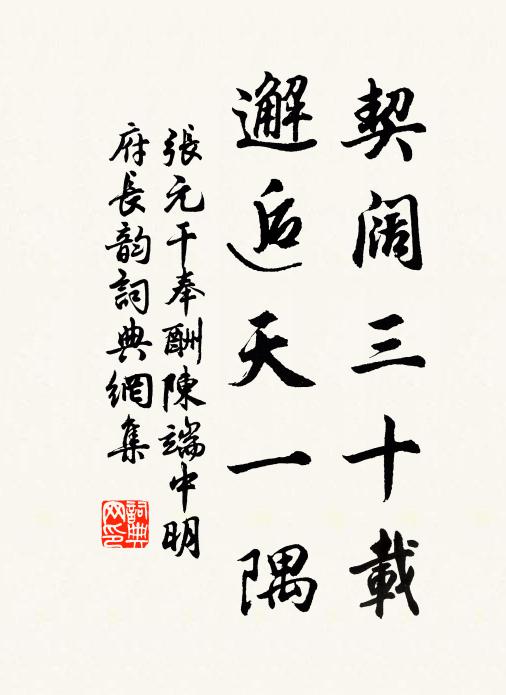 契阔三十載
邂逅天一隅
張元干奉酬陳端中明
府長韵詞典網集
詞典网印